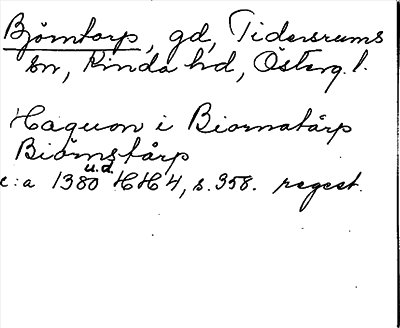 Björntorp, gd, Tidersrums
sn, Kinda hd, Österg. l.
Haquon i Biornatårp
Biörnstårp
c:a 1380 u.d. HH 4, s. 358. regest.